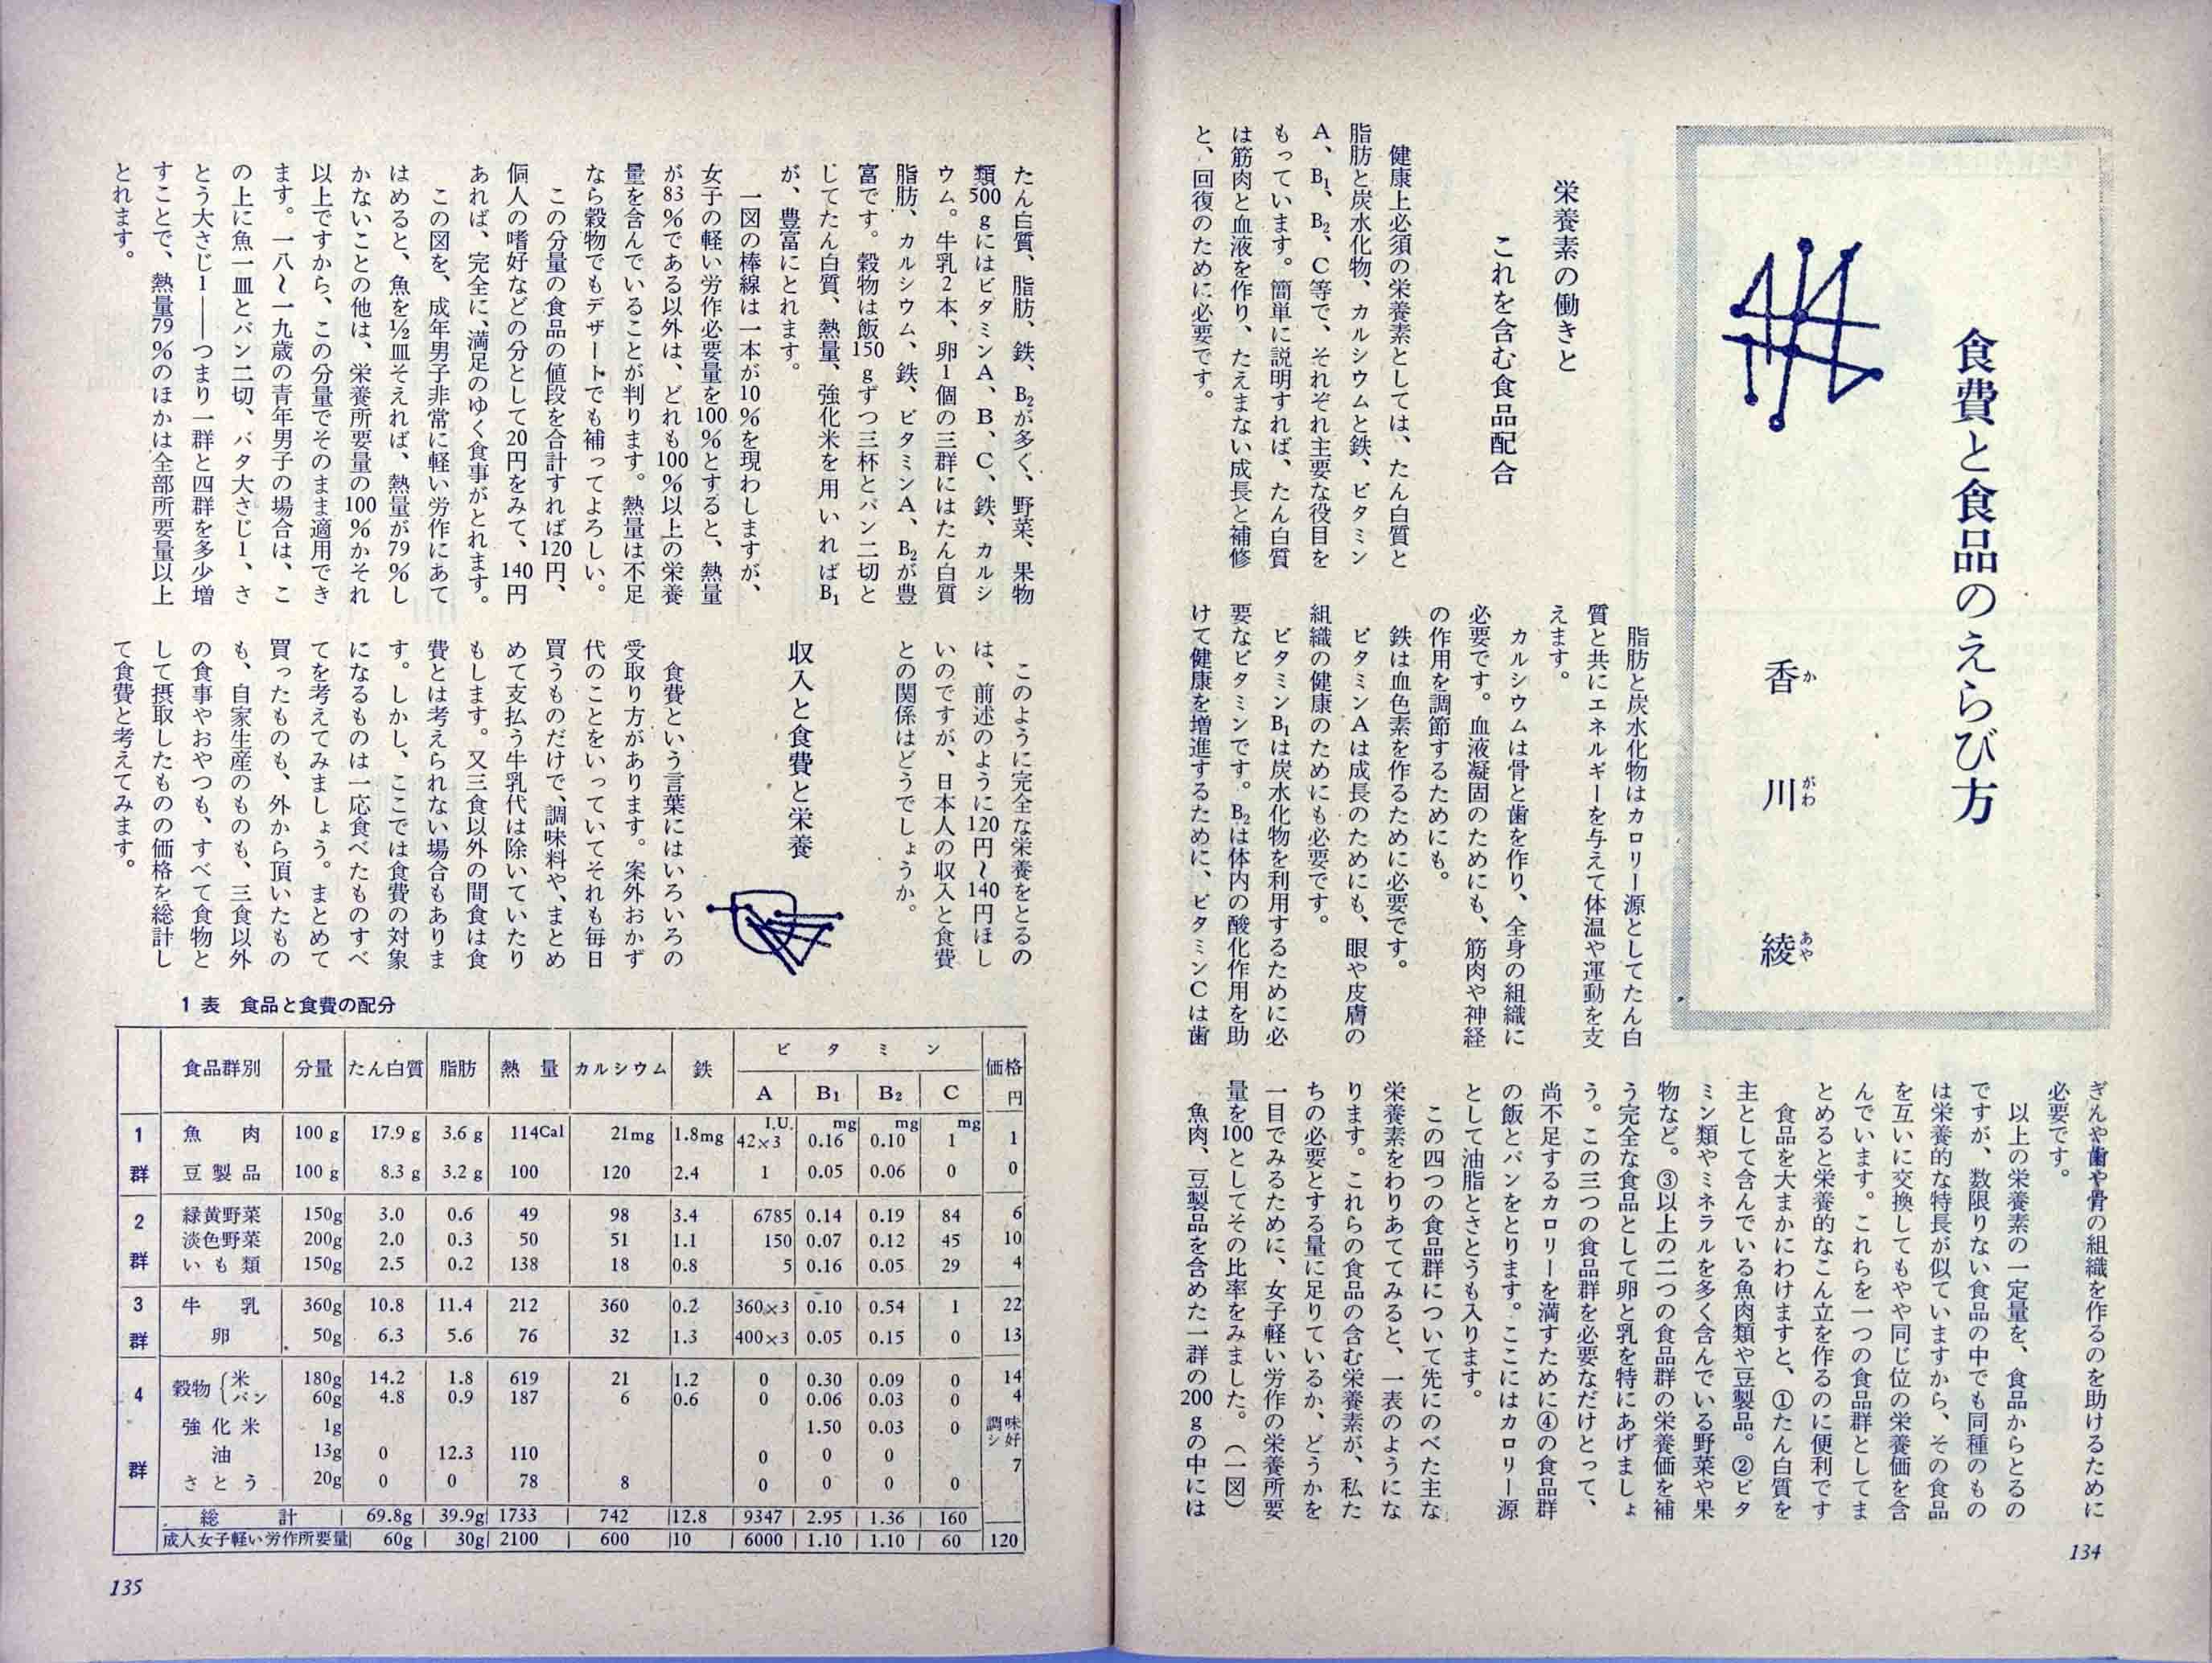 食費と食品のえらび方
香川綾
かがわあや
栄養素の働きと
これを含む食品配合
健康上必須の栄養素としては、たん白質と
脂肪と炭水化物、カルシウムと鉄、ビタミン
A、B₁、B₂、C等で、それぞれ主要な役目を
もっています。簡単に説明すれば、たん白質
は筋肉と血液を作り、たえまない成長と補修
と、回復のために必要です。
脂肪と炭水化物はカロリー源としてたん白
質と共にエネルギーを与えて体温や運動を支
えます。
カルシウムは骨と歯を作り、全身の組織に
必要です。血液凝固のためにも、筋肉や神経
の作用を調節するためにも。
鉄は血色素を作るために必要です。
ビタミンAは成長のためにも、眼や皮膚の
組織の健康のためにも必要です。
ビタミンB₁は炭水化物を利用するために必
要なビタミンです。B₂は体内の酸化作用を助
けて健康を増進するために、ビタミンCは歯
ぎんや歯や骨の組織を作るのを助けるために
必要です。
以上の栄養素の一定量を、食品からとるの
ですが、数限りない食品の中でも同種のもの
は栄養的な特長が似ていますから、その食品
を互いに交換してもやや同じ位の栄養価を含
んでいます。これらを一つの食品群としてま
とめると栄養的なこん立を作るのに便利です
食品を大まかにわけますと、①たん白質を
主として含んでいる魚肉類や豆製品。②ビタ
ミン類やミネラルを多く含んでいる野菜や果
物など。③以上の二つの食品群の栄養価を補
う完全な食品として卵と乳を特にあげましょ
う。この三つの食品群を必要なだけとって、
尚不足するカロリーを満すために④の食品群
の飯とパンをとります。ここにはカロリー源
として油脂とさとうも入ります。
この四つの食品群について先にのべた主な
栄養素をわりあててみると、一表のようにな
ります。これらの食品の含む栄養素が、私た
ちの必要とする量に足りているか、どうかを
一目でみるために、女子軽い労作の栄養所要
量を100としてその比率をみました。（一図）
魚肉、豆製品を含めた一群の200gの中には
134
たん白質、脂肪、鉄、B₂が多く、野菜、果物
類500gにはビタミンA、B、C、鉄、カルシ
ウム。牛乳2本、卵1個の三群にはたん白質
脂肪、カルシウム、鉄、ビタミンA、B₂が豊
富です。穀物は飯150gずつ三杯とパン二切と
してたん白質、熱量、強化米を用いればB₁
が、豊富にとれます。
一図の棒線は一本が10％を現わしますが、
女子の軽い労作必要量を100％とすると、熱量
が83％である以外は、どれも100％以上の栄養
量を含んでいることが判ります。熱量は不足
なら穀物でもデザートでも補ってよろしい。
この分量の食品の値段を合計すれば120円、
個人の嗜好などの分として20円をみて、140円
あれば、完全に、満足のゆく食事がとれます。
この図を、成年男子非常に軽い労作にあて
はめると、魚を½皿そえれば、熱量が79％し
かないことの他は、栄養所要量の100％かそれ
以上ですから、この分量でそのまま適用でき
ます。一八～一九歳の青年男子の場合は、こ
の上に魚一皿とパン二切、バタ大さじ1、さ
とう大さじ1――つまり一群と四群を多少増
すことで、熱量79％のほかは全部所要量以上
とれます。
このように完全な栄養をとるの
は、前述のように120円～140円ほし
いのですが、日本人の収入と食費
との関係はどうでしょうか。
収入と食費と栄養
食費という言葉にはいろいろの
受取り方があります。案外おかず
代のことをいっていてそれも毎日
買うものだけで、調味料や、まとめ
めて支払う牛乳代は除いていたり
もします。又三食以外の間食は食
費とは考えられない場合もありま
す。しかし、ここでは食費の対象
になるものは一応食べたものすべ
てを考えてみましょう。まとめて
買ったものも、外から頂いたもの
も、自家生産のものも、三食以外
の食事やおやつも、すべて食物と
して摂取したものの価格を総計し
て食費と考えてみます。
1表 食品と食費の配分
食品群別 分量 たん白質 脂肪 熱量 カルシウム 鉄 ビタミン 価格
A B₁ B₂ C 円
I.U. mg mg mg
1群 魚肉 100g 17.9g 3.6g 114Cal 21mg 1.8mg 42×3 0.16 0.10 1 1
豆製品 100g 8.3g 3.2g 100 120 2.4 1 0.05 0.06 0 0
2群 緑黄野菜 150g 3.0 0.6 49 98 3.4 6785 0.14 0.19 84 6
淡色野菜 200g 2.0 0.3 50 51 1.1 150 0.07 0.12 45 10
いも類 150g 2.5 0.2 138 18 0.8 5 0.16 0.05 29 4
3群 牛乳 360g 10.8 11.4 212 360 0.2 360×3 0.10 0.54 1 22
卵 50g 6.3 5.6 76 32 1.3 400×3 0.05 0.15 0 13
4群 穀物 米 180g 14.2 1.8 619 21 1.2 0 0.30 0.09 0 14
パン 60g 4.8 0.9 187 6 0.6 0 0.06 0.03 0 4
強化米 1g 1.50 0.03 0 調味シ好
油 13g 0 12.3 110 0 0 0 7
さとう 20g 0 0 78 8 0 0 0 0
総計 69.8g 39.9g 1733 742 12.8 9347 2.95 1.36 160
成人女子軽い労作所要量 60g 30g 2100 600 10 6000 1.10 1.10 60 120
135